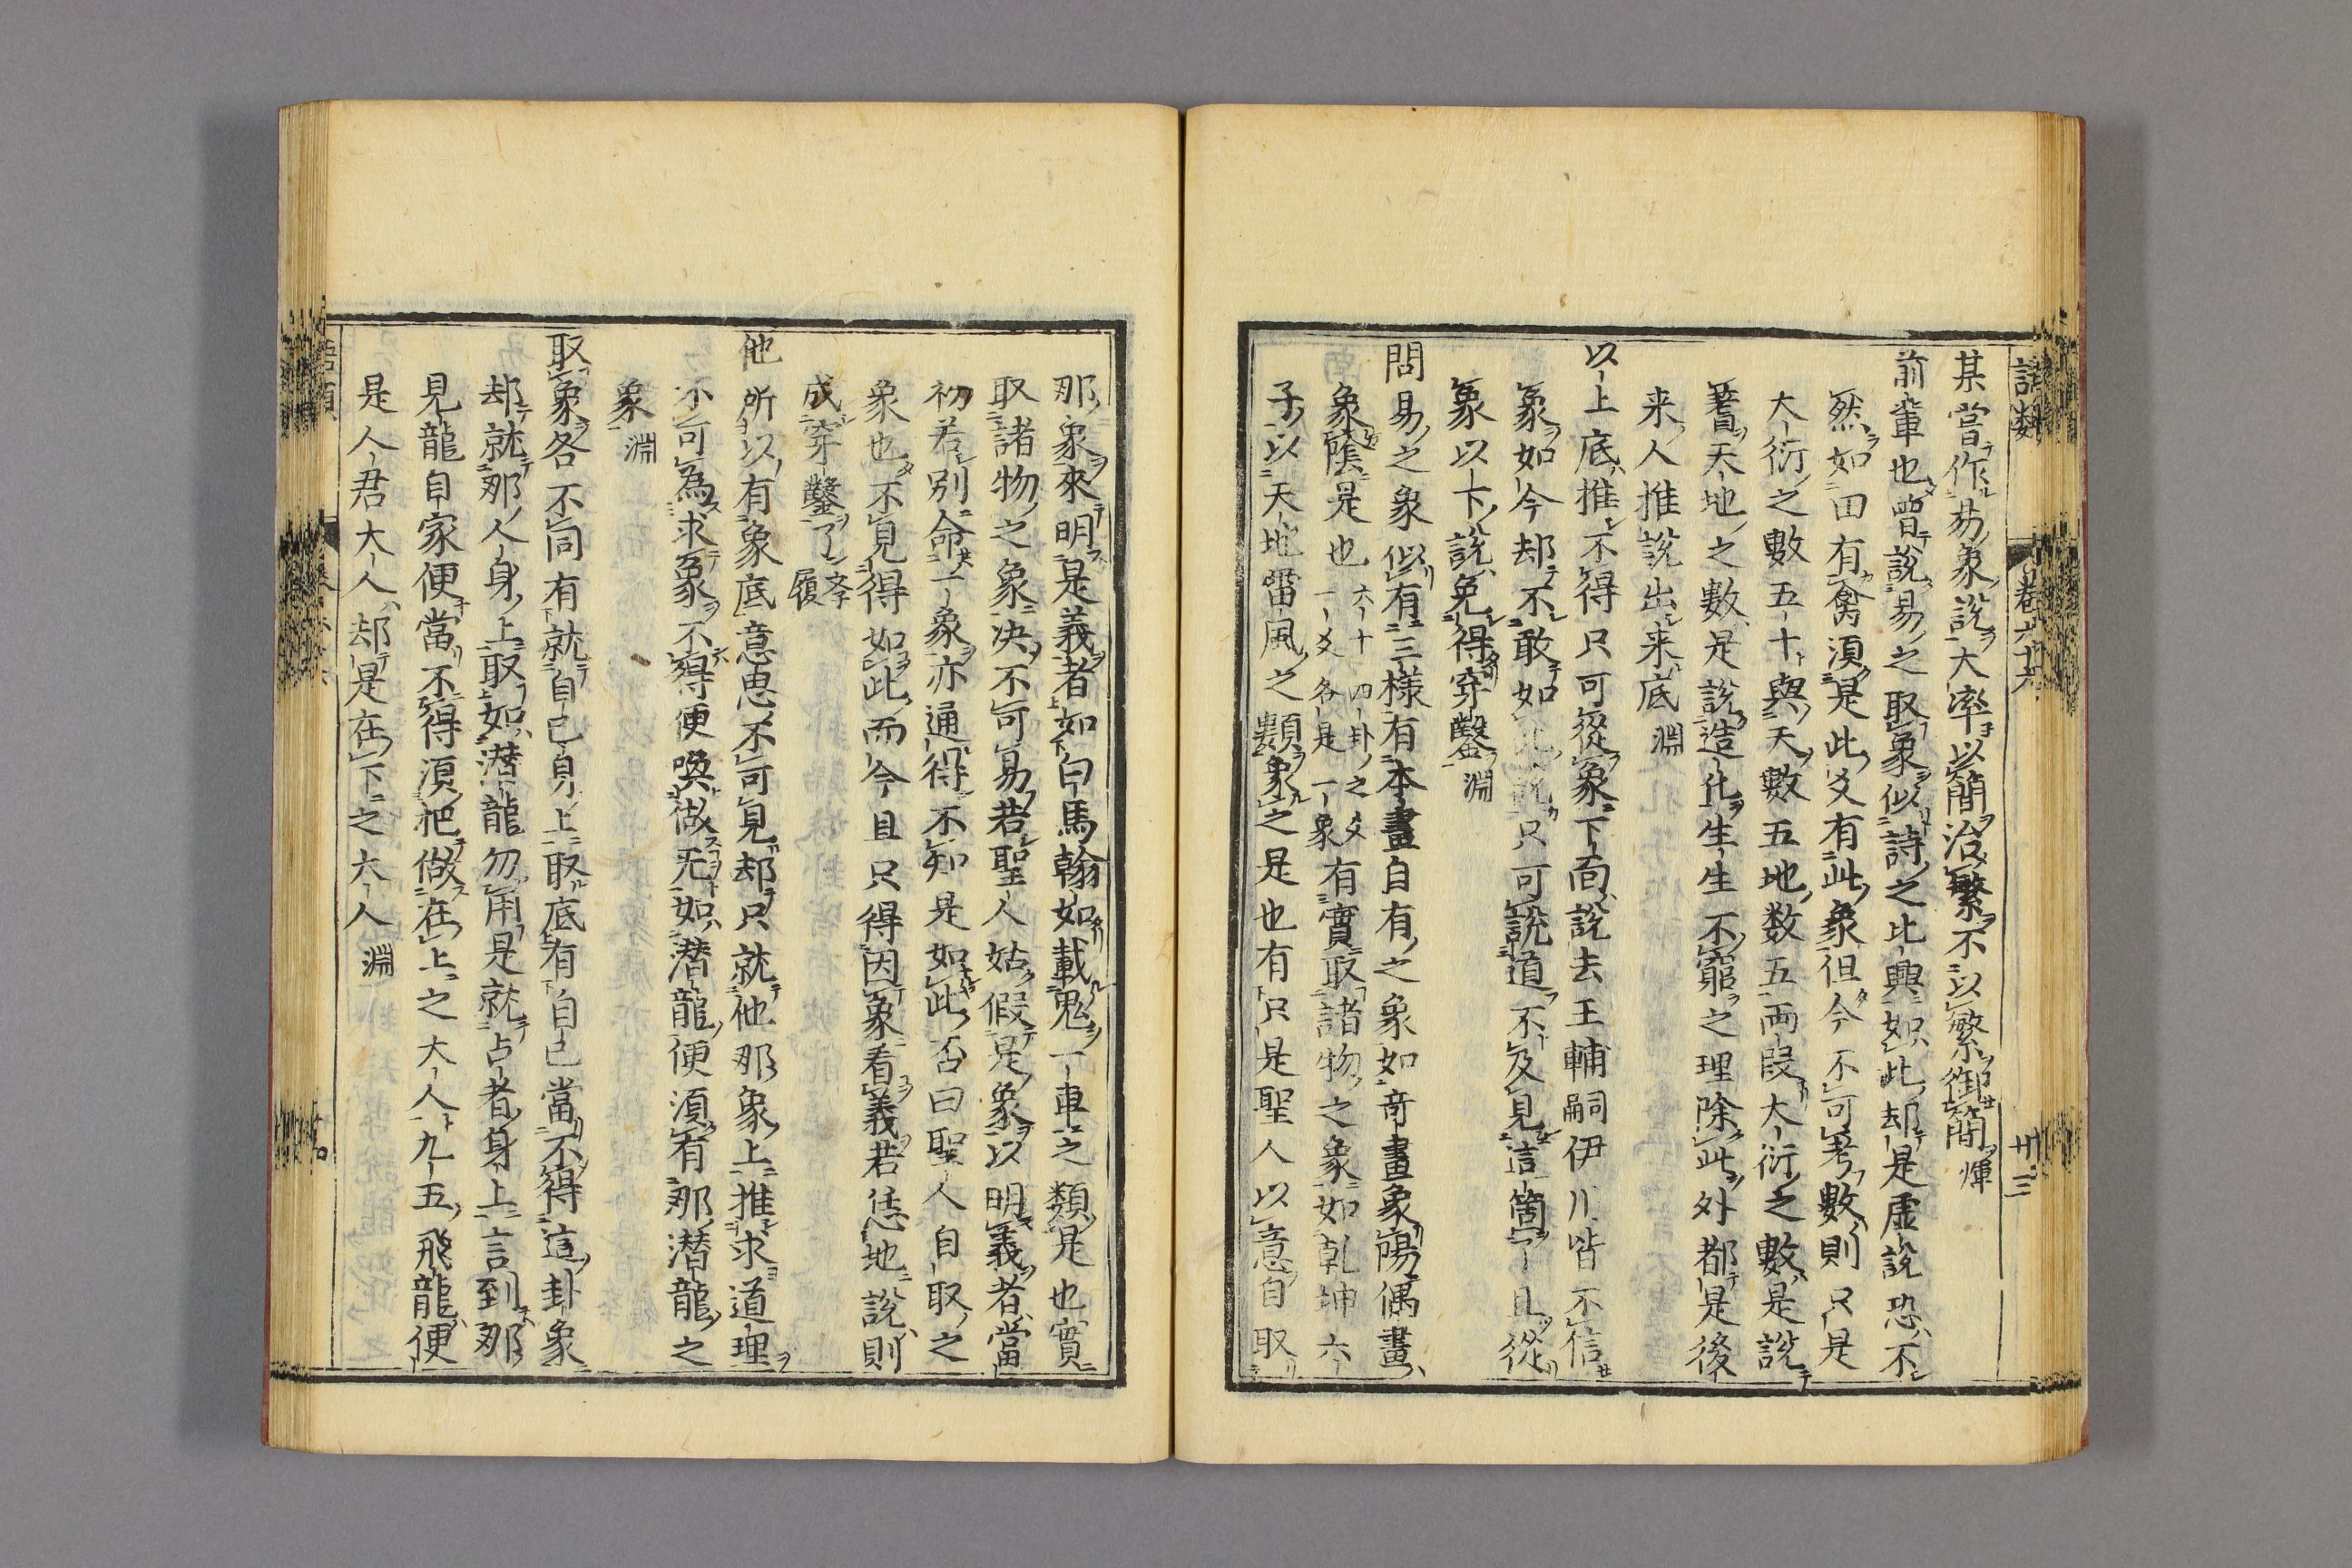 語類 卷六十六 廿三
某嘗作易象說大率以簡治繁不以繁御簡煇
前輩也曽說易之取象似詩之比興如此却是虛說恐不
然如田有禽須是此爻有此象但今不可考數則只是
大衍之數五十與天數五地数五両段大衍之數是說
蓍天地之數是說造化生生不窮之理除此外都是後
来人推說出来底淵
以上底推不得只可從象下面說去王輔嗣伊川皆不信
象如今却不敢如此說只可說道不及見這箇了且從
象以下說免得穿鑿淵
問易之象似有三樣有本畫自有之象如竒畫象陽偶畫
象陰是也六十四卦之爻一爻各是一象有實取諸物之象如乾坤六
子以天地雷風之類象之是也有只是聖人以意自取
那象來明是義者如白馬翰如載鬼一車之類是也實
取諸物之象决不可易若聖人姑假是象以明義者當
初若別命一象亦通得不知是如此否曰聖人自取之
象也不見得如此而今且只得因象看義若恁地說則
成穿鑿了孝履
他所以有象底意思不可見却只就他那象上推求道理
不可為求象不得便喚做无如潜龍便須有那潜龍之
象淵
取象各不同有就自己身上取底有自己當不得這卦象
却就那人身上取如潜龍勿用是就占者身上言到那
見龍自家便當不得須把做在上之大人九五飛龍便
是人君大人却是在下之大人淵